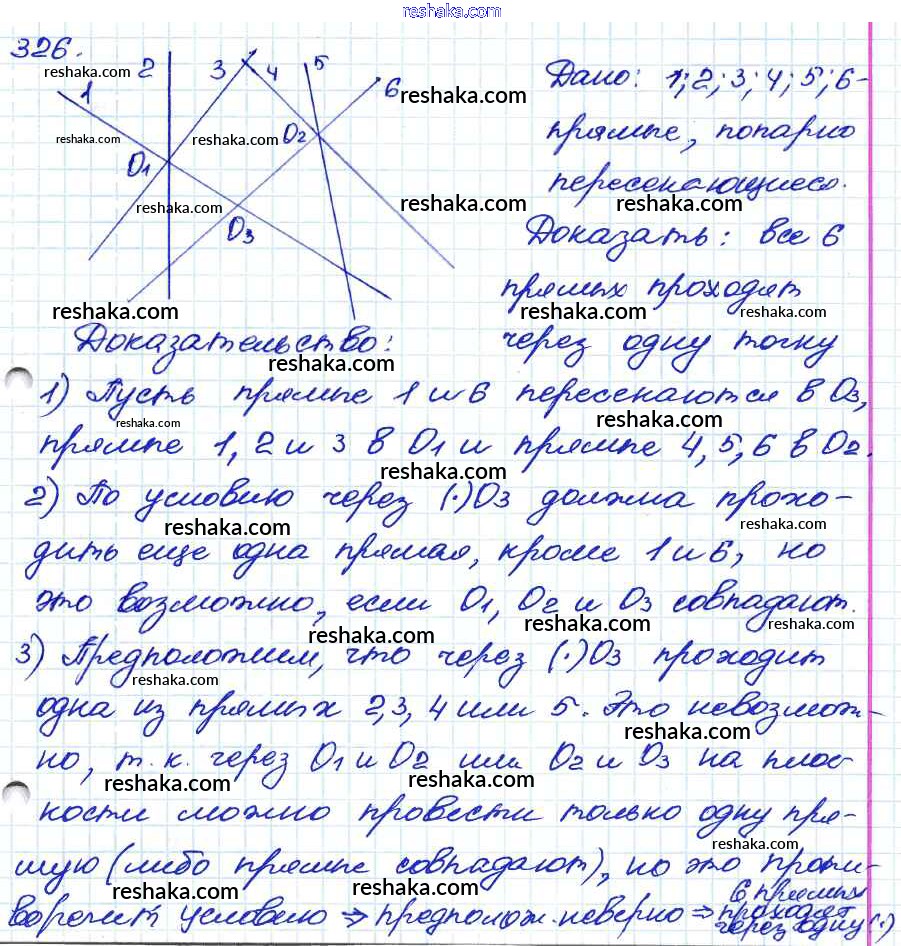 reshaka.com
326.
reshaka.com
1 2 3 4 5 6
reshaka.com
reshaka.com
reshaka.com
O1 O2
reshaka.com
O3
Дано: 1; 2; 3; 4; 5; 6-
прямые, попарно
пересекающиеся.
reshaka.com reshaka.com
Доказать: все 6
прямых проходят
reshaka.com reshaka.com
Доказательство: через одну точку
reshaka.com reshaka.com
1) Пусть прямые 1 и 6 пересекаются в O3,
reshaka.com reshaka.com
прямые 1, 2 и 3 в O1 и прямые 4, 5, 6 в O2.
reshaka.com reshaka.com
2) По условию через (·)O3 должна прохо-
reshaka.com reshaka.com
дить еще одна прямая, кроме 1 и 6, но
reshaka.com
это возможно, если O1, O2 и O3 совпадают.
reshaka.com reshaka.com reshaka.com
3) Предположим, что через (·)O3 проходит
reshaka.com
одна из прямых 2, 3, 4 или 5. Это невозмож-
reshaka.com
но, т.к. через O1 и O2 или O2 и O3 на плос
reshaka.com reshaka.com
кости можно провести только одну пря-
reshaka.com
мую (либо прямые совпадают), но это проти-
reshaka.com reshaka.com reshaka.com
воречит условию ⇒ предполож. неверно ⇒ 6 прямых
проходят
через одну (·)